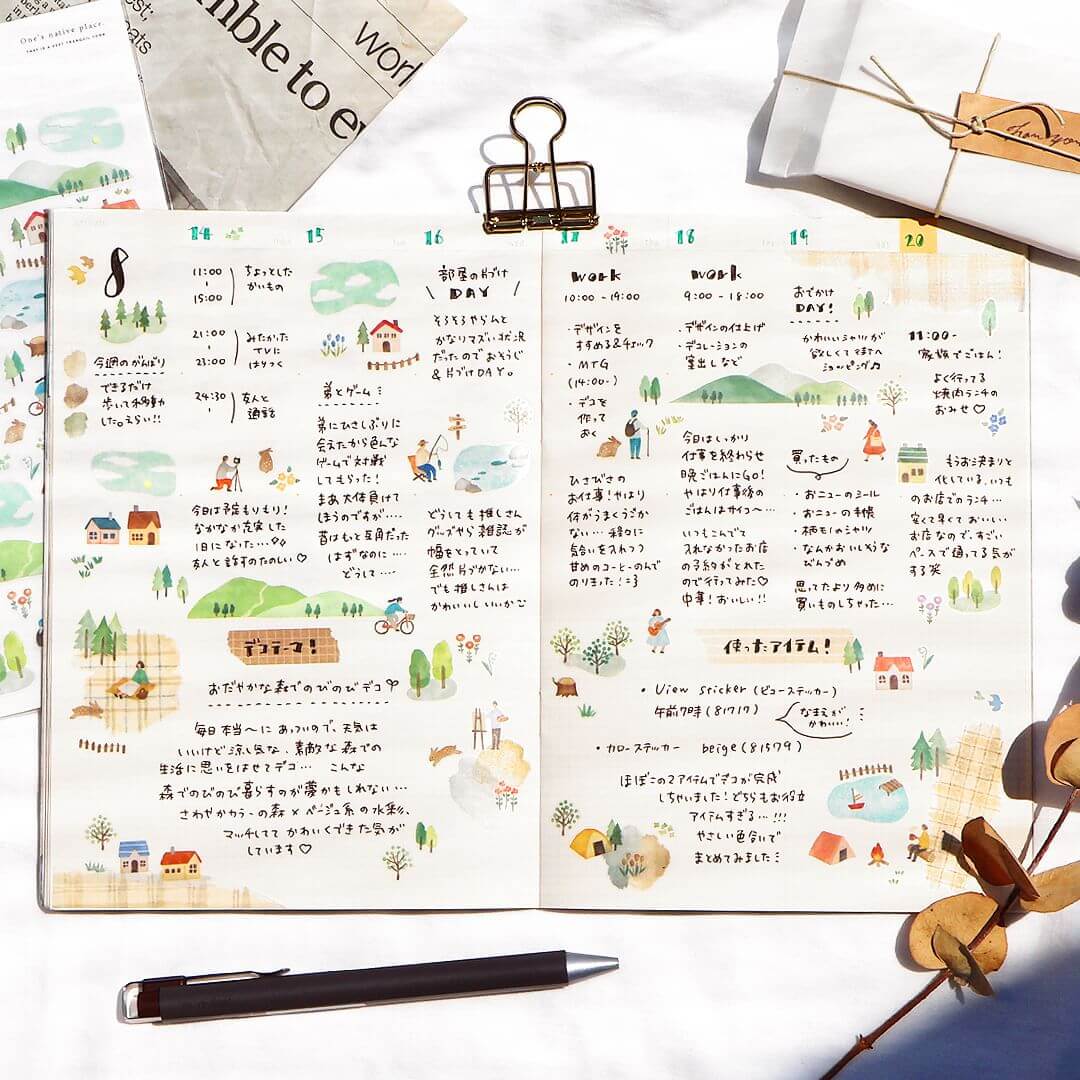 One's native place.
mble to e
work
Thank you
8
今週のがんばり
できるだけ
歩いて移動
した。えらい!!
14
11:00
15:00
ちょっとした
かいもの
21:00
23:00
みたかった
TVに
はりつく
24:30
友人と
通話
今日は予定もりもり!
なかなか充実した
1日になった…
友人と話すのたのしい♡
15
弟とゲーム
弟にひさしぶりに
会えたから色んな
ゲームで対戦
してもらった!
まあ大体負けて
しまうのですが…
昔はもっと互角だった
はずなのに…
どうして…
16
部屋の片づけ
DAY
そろそろやらんと
かなりマズい状況
だったのでおそうじ
&片づけDAY。
どうしても推しさん
グッズやら雑誌が
幅をとっていて
全然片づかない…
でも推しさんは
かわいいしいいかご
17
work
10:00 - 19:00
・デザインを
すすめる&チェック
・MTG
(14:00-)
・デコを
作って
おく
ひさびさの
お仕事!やはり
何がうまくうごか
ない…穏々に
気合いを入れつつ
甘めのコーヒーのんで
のりきった!
18
work
9:00 - 18:00
・デザインの仕上げ
・デコレーションの
書出しなど
今日はしっかり
仕事を終わらせ
晩ごはんにGO!
やはり仕事後の
ごはんはサイコ〜…
いつもこんでて
入れなかったお店
の予約がとれた
ので行ってみた♡
中華!おいしい!!
19
おでかけ
DAY!
かわいいシャツが
欲しくてまちへ
ショッピング♫
買ったもの
・おニューのシール
・おニューの手帳
・柄モノのシャツ
・なんかおいしそうな
びんづめ
思ってたより多めに
買いものしちゃった…
20
11:00-
家族でごはん!
よく行ってる
焼肉ランチの
おみせ♡
もうお決まりと
化している、いつも
のお店でのランチ…
安くて早くておいしい
お店なので、すごい
ペースで通ってる気が
する笑
デコテーマ!
おだやかな森でのびのびデコ
毎日本当〜にあついので、天気は
いいけど涼し気な、素敵な森での
生活に思いをはせてデコ… こんな
森でのびのび暮らすのが夢かもしれない…
さわやかカラーの森×ベージュ系の水彩、
マッチしててかわいくできた気が
しています♡
使ったアイテム!
・View sticker (ビューステッカー)
午前7時 (81717)
なまえが
かわいい!
・カローステッカー beige (81579)
ほぼこの2アイテムでデコが完成
しちゃいました!どちらもお役立
アイテムすぎる…!!!
やさしい色合いで
まとめてみました